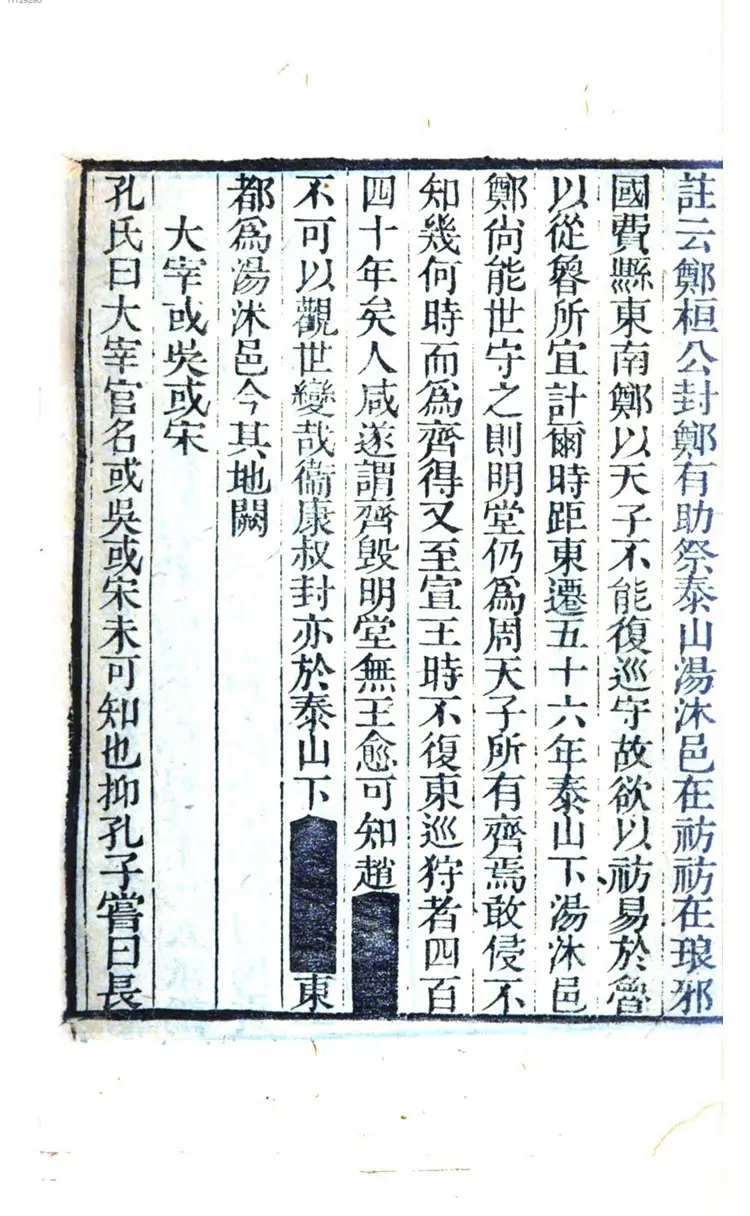 註云鄭桓公封鄭有助祭泰山湯沐邑在祊祊在琅邪
國費縣東南鄭以天子不能復巡守故欲以祊易於魯
以從魯所宜計爾時距東遷五十六年泰山下湯沐邑
鄭尙能世守之則明堂仍爲周天子所有齊焉敢侵不
知幾何時而爲齊得又至宣王時不復東巡狩者四百
四十年矣人咸遂謂齊毀明堂無王愈可知趙
不可以觀世變哉衞康叔封亦於泰山下東
都爲湯沐邑今其地闕
大宰或吳或宋
孔氏曰大宰官名或吳或宋未可知也抑孔子嘗曰長